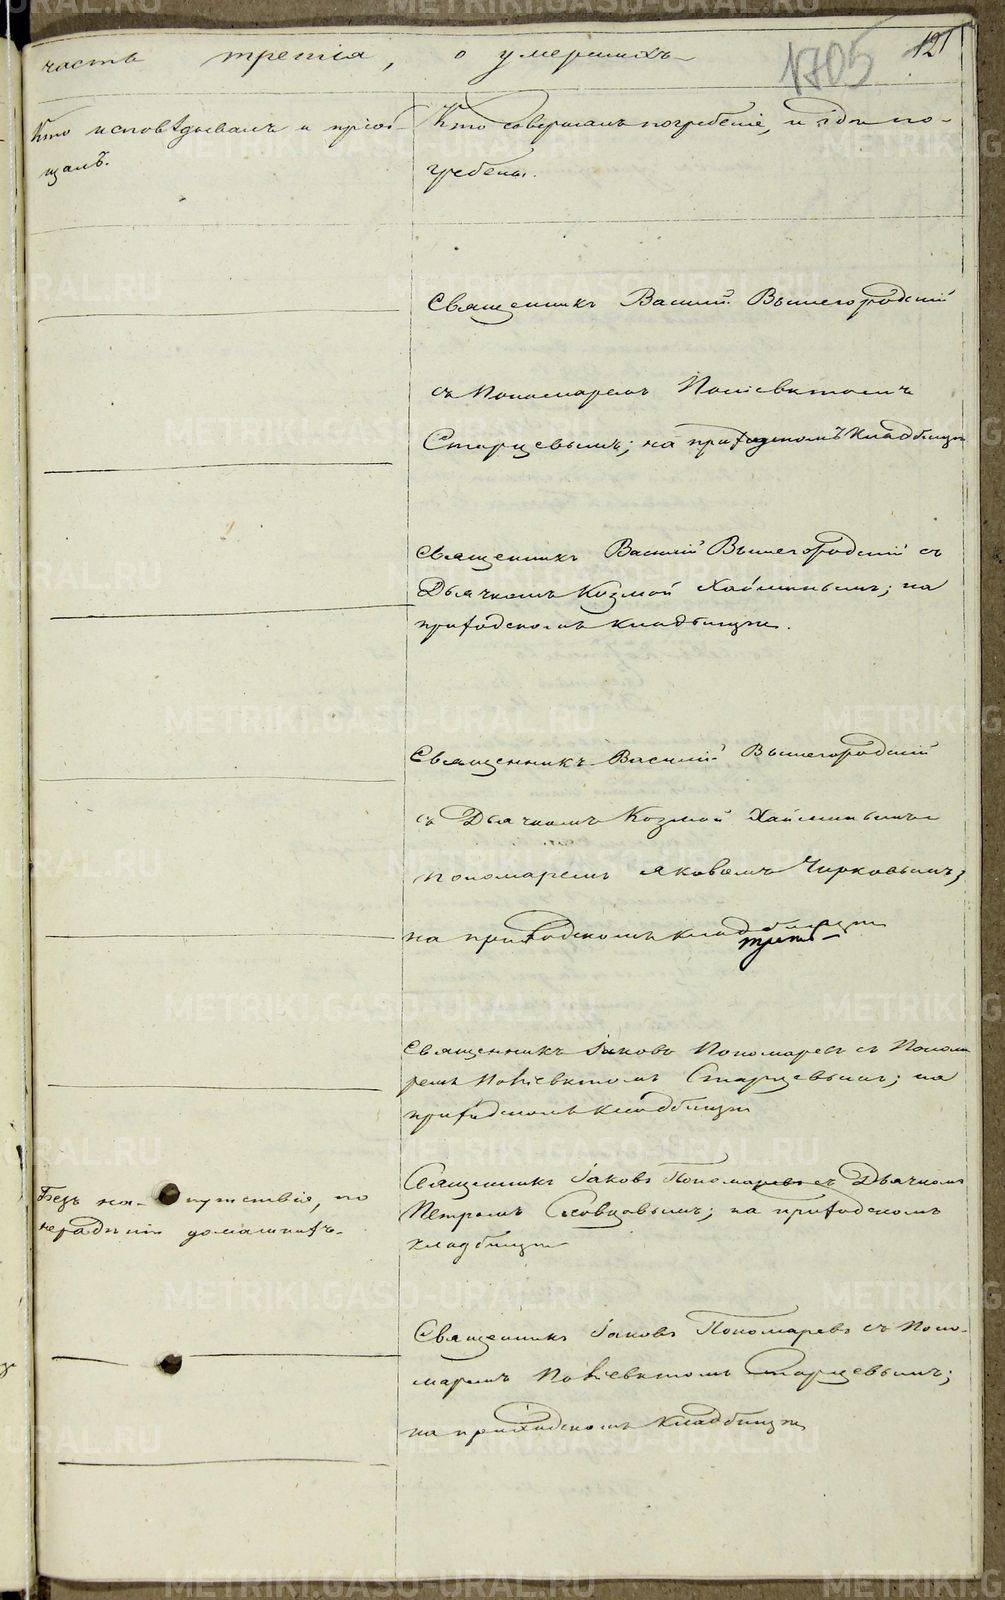 часть третія, о умершихъ
1705
121
Кто исповѣдывалъ и пріоб-
щалъ.
Кто совершалъ погребеніе, и гдѣ по-
гребены.
Священникъ Василій Вышегородскій
съ Пономаремъ Поліевктомъ
Старцевымъ; на приходскомъ кладбищѣ
Священникъ Василій Вышегородскій съ
Дьячкомъ Козмой Хайминымъ; на
приходскомъ кладбищѣ.
Священникъ Василій Вышегородскій
съ Дьячкомъ Козмой Хайминымъ и
пономаремъ Яковомъ Чирковымъ;
на приходскомъ кладбищѣ
Священникъ Іаковъ Пономаревъ съ Понома
ремъ Поліевктомъ Старцевымъ; на
приходскомъ кладбищѣ
Безъ на-путствія, по
нерадѣнію домашнихъ.
Священникъ Іаковъ Пономаревъ съ Дьячкомъ
Петромъ Словцовымъ; на приходскомъ
кладбищѣ
Священникъ Іаковъ Пономаревъ съ Поно-
маремъ Поліевктомъ Старцевымъ;
на приходскомъ кладбищѣ
METRIKI.GASO-URAL.RU